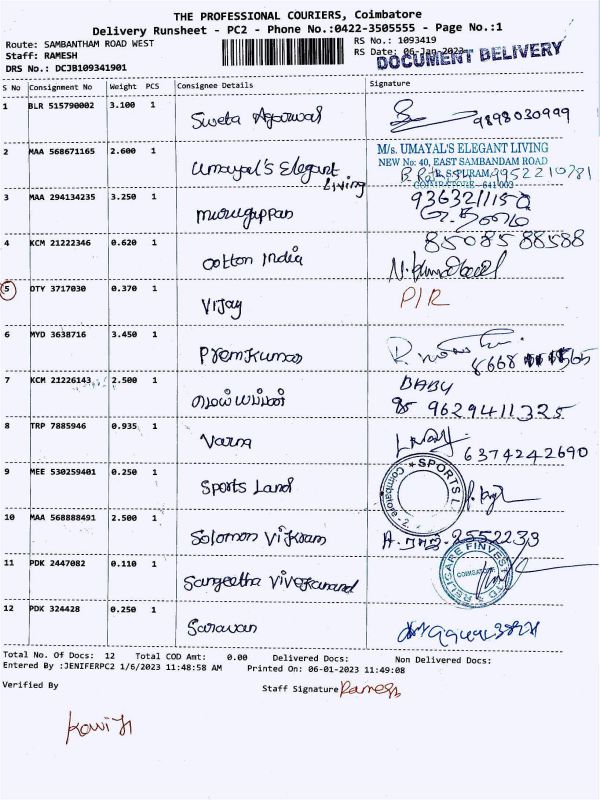 THE PROFESSIONAL COURIERS, Coimbatore
Delivery Runsheet - PC2 - Phone No.:0422-3505555 - Page No.:1
Route: SAMBANTHAM ROAD WEST
RS No.: 1093419
Staff: RAMESH
RS Date: 06-Jan-2023
DOCUMENT DELIVERY
DRS No.: DCJB109341901
S No Consignment No Weight PCS Consignee Details Signature
1 BLR 515790002 3.100 1 Sweta Agarwal 9898030999
2 MAA 568671165 2.600 1 Umayal's Elegant Living
M/s. UMAYAL'S ELEGANT LIVING
NEW No: 40, EAST SAMBANDAM ROAD
R.S.PURAM, 9952210781
COIMBATORE - 641 002
3 MAA 294134235 3.250 1 Murugappan 9363211150
4 KCM 21222346 0.620 1 Cotton India 85085 88588
5 OTY 3717030 0.370 1 Vijay P/R
6 MYD 3638716 3.450 1 Premkumar 8668 565
7 KCM 21226143 2.500 1 BABY
9629411325
8 TRP 7885946 0.935 1 Varna 6374242690
9 MEE 530259401 0.250 1 Sports Land
SPORTS L
Coimbatore - 2
10 MAA 568888491 2.500 1 Solomon Vikram 2552233
11 PDK 2447082 0.110 1 Sangeetha Vivekanand
RELIGARE FINVEST LTD
COIMBATORE
12 PDK 324428 0.250 1 Saravan
Total No. Of Docs: 12 Total COD Amt: 0.00 Delivered Docs: Non Delivered Docs:
Entered By :JENIFERPC2 1/6/2023 11:48:58 AM Printed On: 06-01-2023 11:49:08
Verified By Staff Signature Ramesh